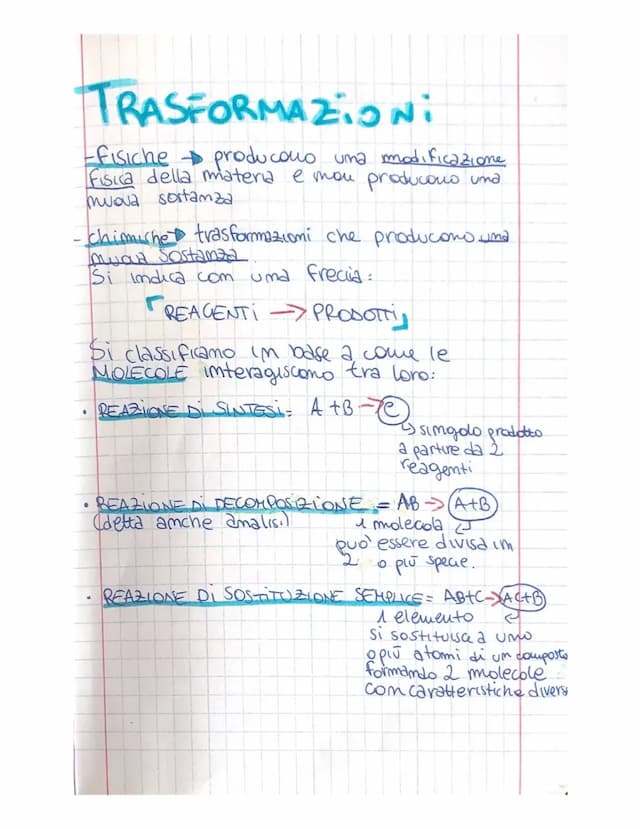 TRASFORMAZIONI
-fisiche → producono una modificazione
fisica della materia e non producono una
nuova sostanza
- chimiche → trasformazioni che producono una
nuova sostanza.
Si indica con una freccia:
「REAGENTI → PRODOTTI」
Si classificano in base a come le
MOLECOLE interagiscono tra loro:
• REAZIONE DI SINTESI = A + B → C
↳ singolo prodotto
a partire da 2
reagenti
• REAZIONE DI DECOMPOSIZIONE = AB → A+B
(detta anche analisi) 1 molecola ↲
può essere divisa in
2 o più specie.
• REAZIONE DI SOSTITUZIONE SEMPLICE = AB+C → AC+B
1 elemento ↲
si sostituisce a uno
o più atomi di un composto
formando 2 molecole
con caratteristiche diverse